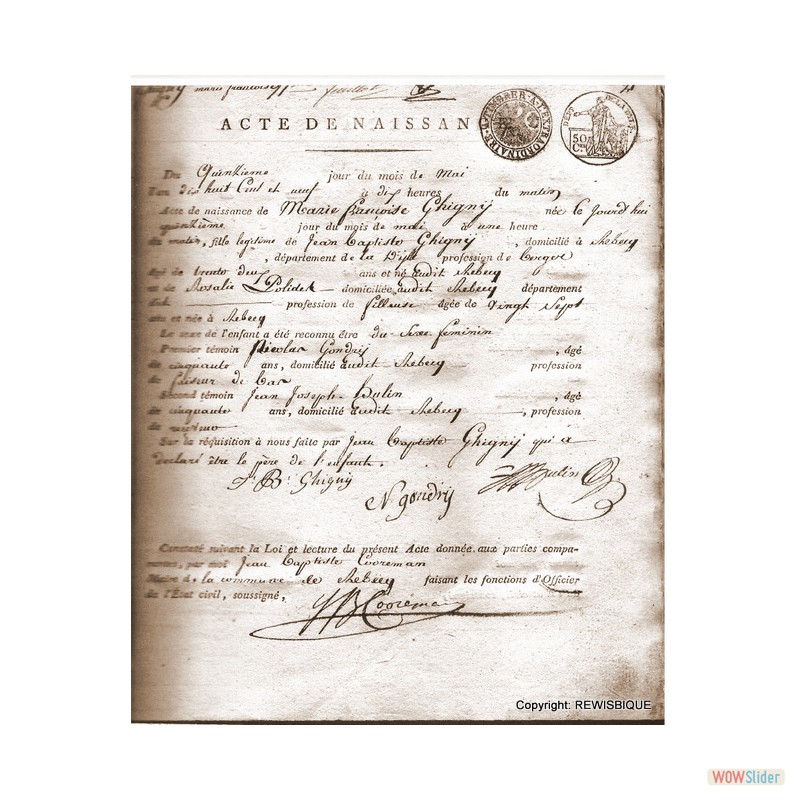 ACTE DE NAISSAN
TIMBRE A L'EXTRAORDINAIRE
DEPT DE LA DYLE
50 Cen
Du Quinzieme jour du mois de Mai
l'an dix huit Cent et neuf à dix heures du matin
Acte de naissance de Marie françoise Ghigny née le jourd'hui
quinzième jour du mois de mai à une heure
du matin, fille legitime de Jean Baptiste Ghigny, domicilié à Sheberg
, département de la Dyle profession de berger
âgé de trente deux ans et né audit Sheberg
et de Rosalie domiciliée audit Sheberg département
dud. profession de fileuse âgée de Vingt Sept
ans et née à Sheberg
Le sexe de l'enfant a été reconnu être du Sexe feminin
Premier témoin Nicolas Gondry , âgé
de cinquante ans, domicilié audit Sheberg profession
de faiseur de bas
Second témoin Jean Joseph Hulin , âgé
de cinquante ans, domicilié audit Sheberg , profession
de
Sur la réquisition à nous faite par Jean Baptiste Ghigny qui a
declaré être le père de l'enfant.
J. B. Ghigny
N. gondry
Hulin
Constaté suivant la Loi et lecture du présent Acte donnée aux parties compa-
rantes, par moi Jean Baptiste Cooreman
Maire de la commune de Sheberg faisant les fonctions d'Officier
de l'État civil, soussigné,
JB Cooreman
Copyright: REWISBIQUE
WOWSlider